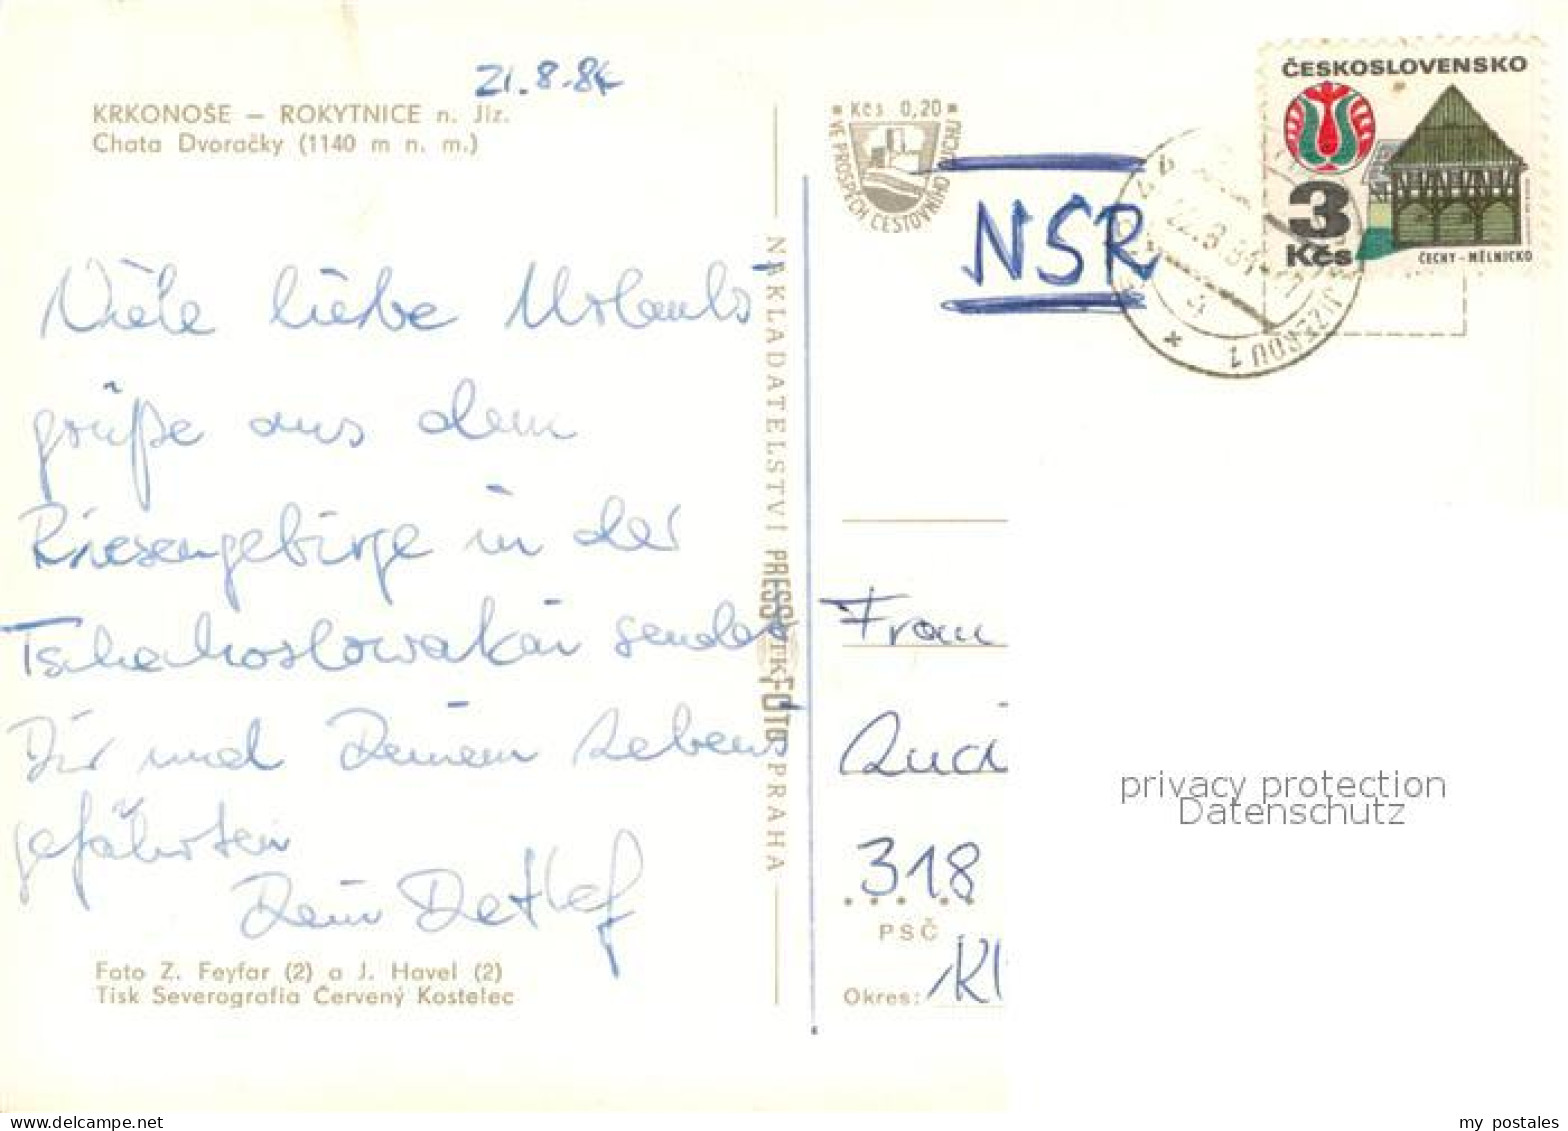 21.8.84
KRKONOŠE – ROKYTNICE n. Jiz.
Chata Dvoračky (1140 m n. m.)
Viele liebe Urlaubs
grüße aus dem
Riesengebirge in der
Tschechoslowakei sendet
Dir und Deinem Lebens
gefährten
Dein Detlef
Foto Z. Feyfar (2) a J. Havel (2)
Tisk Severografia Červený Kostelec
NAKLADATELSTVÍ PRESSFOTO PRAHA
Kčs 0,20
VE PROSPĚCH CESTOVNÍHO RUCHU
NSR
ČESKOSLOVENSKO
3
Kčs
ČECHY - MĚLNICKO
Frau
318
PSČ
Okres: Kl
privacy protection
Datenschutz
my postales